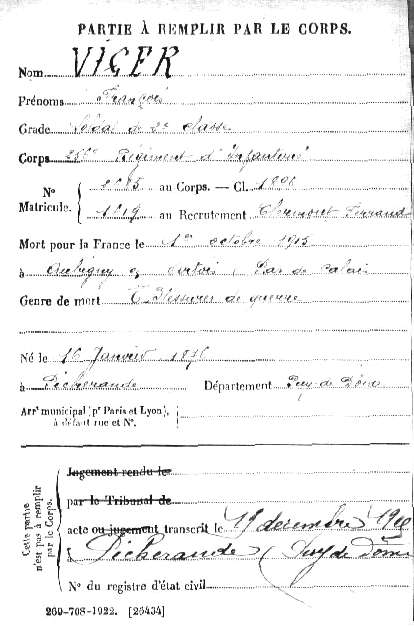 PARTIE À REMPLIR PAR LE CORPS.
Nom VIGER
Prénoms François
Grade Soldat de 2e classe
Corps Régiment d'infanterie
Nº Matricule. au Corps. — Cl.
au Recrutement Clermont Ferrand
Mort pour la France le 1er octobre 1915
à Aubigny en artois, Pas de Calais
Genre de mort Blessures de guerre
Né le 16 Janvier 1876
à Picherande Département Puy-de-Dôme
Arrt municipal (pr Paris et Lyon),
à défaut rue et Nº.
Cette partie n'est pas à remplir par le Corps.
Jugement rendu le
par le Tribunal de
acte ou jugement transcrit le décembre
à Picherande (Puy de Dôme
Nº du registre d'état civil
269-708-1922. [26434]